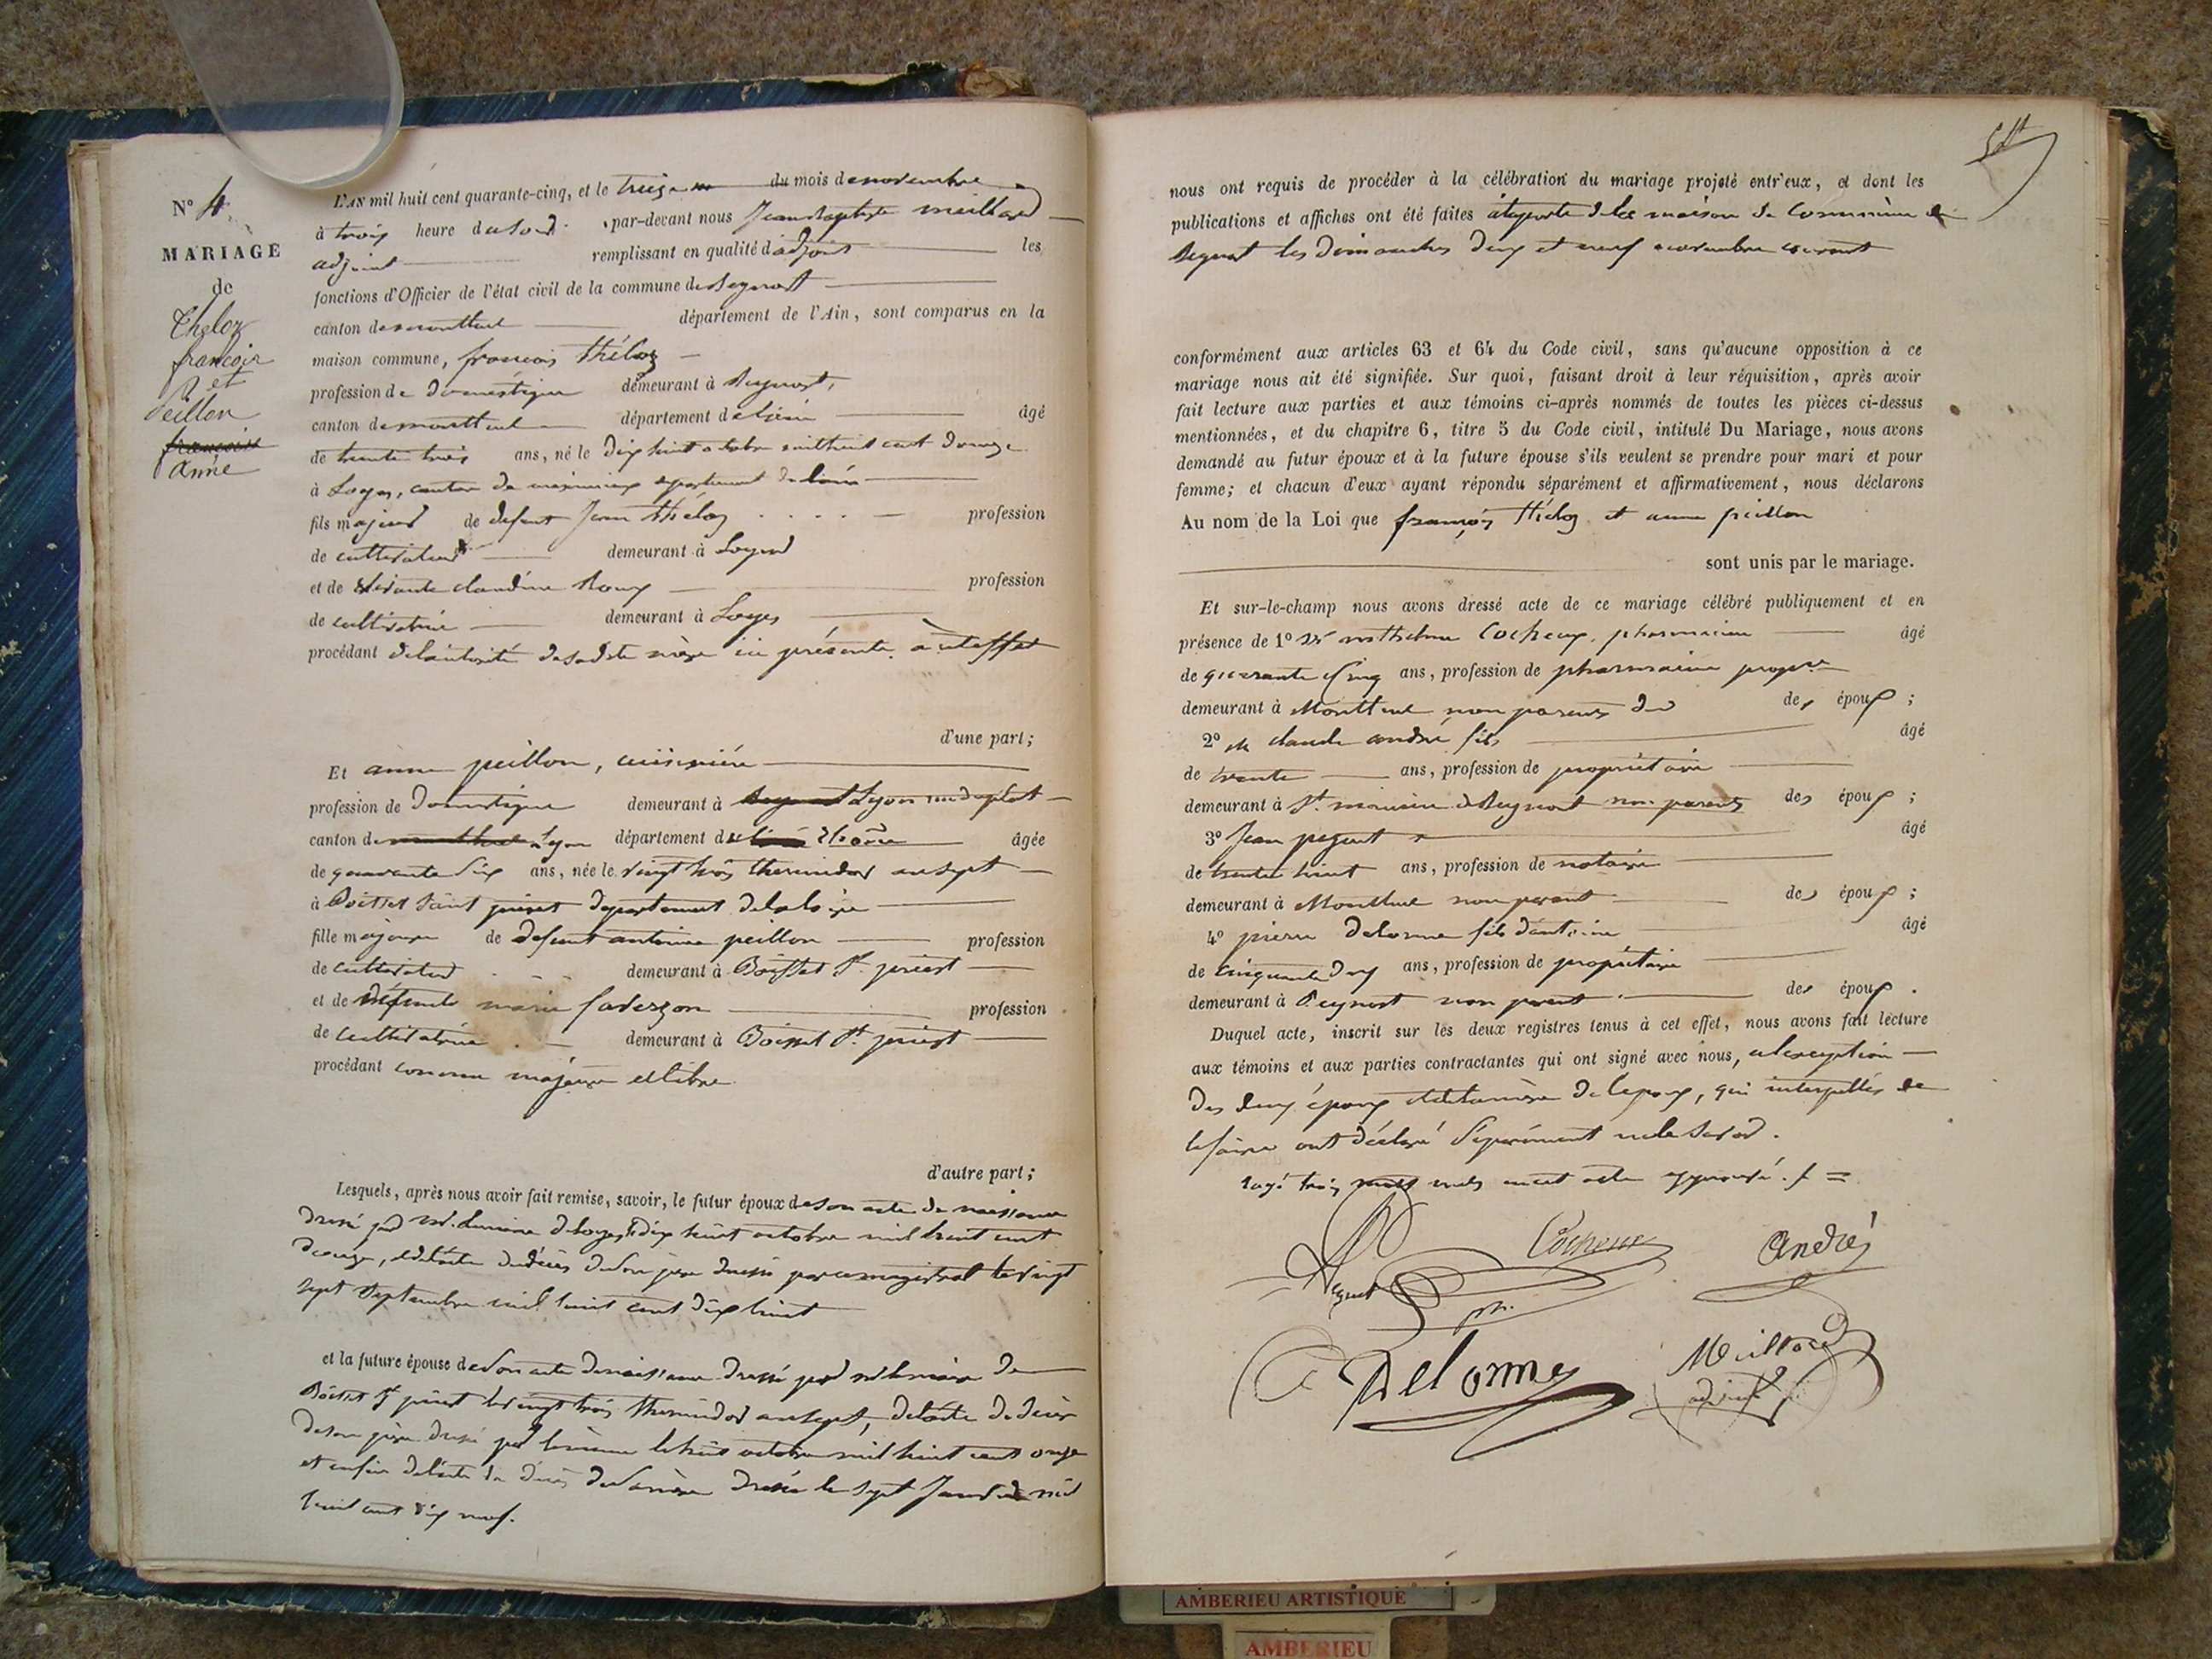 N° 4.
MARIAGE
de
Theloz
françois
et
Peillon
françoise
Anne
L'AN mil huit cent quarante-cinq, et le treize du mois de novembre
à trois heure du soir par-devant nous Jean Baptiste Meillard
adjoint remplissant en qualité d'adjoint les
fonctions d'Officier de l'état civil de la commune de Beynost
canton de montluel département de l'Ain, sont comparus en la
maison commune, françois théloz
profession de domestique demeurant à Beynost,
canton de montluel département de l'ain âgé
de trente trois ans, né le dix huit octobre mil huit cent douze
à Loyes, canton de meximieux département de l'ain
fils majeur de défunt Jean théloz profession
de cultivateur demeurant à Loyes
et de vivante claudine Roux profession
de cultivatrice demeurant à Loyes
procédant de l'autorité de sadite mère ici présente à cet effet
d'une part;
Et anne peillon, cuisinière
profession de domestique demeurant à Beynost Lyon
canton de montluel Lyon département de l'ain Rhône âgée
de quarante six ans, née le vingt trois thermidor an sept
à Boisset Saint priest département de la loire
fille majeure de défunt antoine peillon profession
de cultivateur demeurant à Boisset St. priest
et de défunte marie profession
de cultivatrice demeurant à Boisset St. priest
procédant comme majeure et libre
d'autre part;
Lesquels, après nous avoir fait remise, savoir, le futur époux de son acte de naissance
dressé par mr. le maire de loyes le dix huit octobre mil huit cent
douze, et de l'acte de décès de son père dressé par ce magistrat le vingt
sept septembre mil huit cent dix huit
et la future épouse de son acte de naissance dressé par mr le maire de
Boisset St priest le vingt trois thermidor an sept, de l'acte de décès
de son père dressé par le même le huit octobre mil huit cent onze
et enfin de l'acte de décès de sa mère dressé le sept Janvier mil
huit cent dix neuf.
nous ont requis de procéder à la célébration du mariage projeté entr'eux, et dont les
publications et affiches ont été faites à la porte de la maison de Commune de
Beynost les dimanches deux et neuf novembre courant
conformément aux articles 63 et 64 du Code civil, sans qu'aucune opposition à ce
mariage nous ait été signifiée. Sur quoi, faisant droit à leur réquisition, après avoir
fait lecture aux parties et aux témoins ci-après nommés de toutes les pièces ci-dessus
mentionnées, et du chapitre 6, titre 5 du Code civil, intitulé Du Mariage, nous avons
demandé au futur époux et à la future épouse s'ils veulent se prendre pour mari et pour
femme; et chacun d'eux ayant répondu séparément et affirmativement, nous déclarons
Au nom de la Loi que françois théloz et anne peillon
sont unis par le mariage.
Et sur-le-champ nous avons dressé acte de ce mariage célébré publiquement et en
présence de 1° Mr anthelme Cocheux, pharmacien âgé
de quarante cinq ans, profession de pharmacien
demeurant à Montluel non parent des époux;
2° M claude andré fils âgé
de trente ans, profession de propriétaire
demeurant à St. maurice de Beynost non parent des époux;
3° Jean peguet âgé
de trente huit ans, profession de notaire
demeurant à Montluel non parent des époux;
4° pierre delorme fils d'antoine âgé
de cinquante deux ans, profession de propriétaire
demeurant à Beynost non parent des époux.
Duquel acte, inscrit sur les deux registres tenus à cet effet, nous avons fait lecture
aux témoins et aux parties contractantes qui ont signé avec nous, à l'exception
des deux époux et de la mère de l'époux, qui interpellés de
le faire ont déclaré séparément ne le savoir.
rayé trois mots en cet acte approuvé.
Peguet Cocheux ph. André
Delorme Meillard
adjoint
AMBERIEU ARTISTIQUE
AMBERIEU